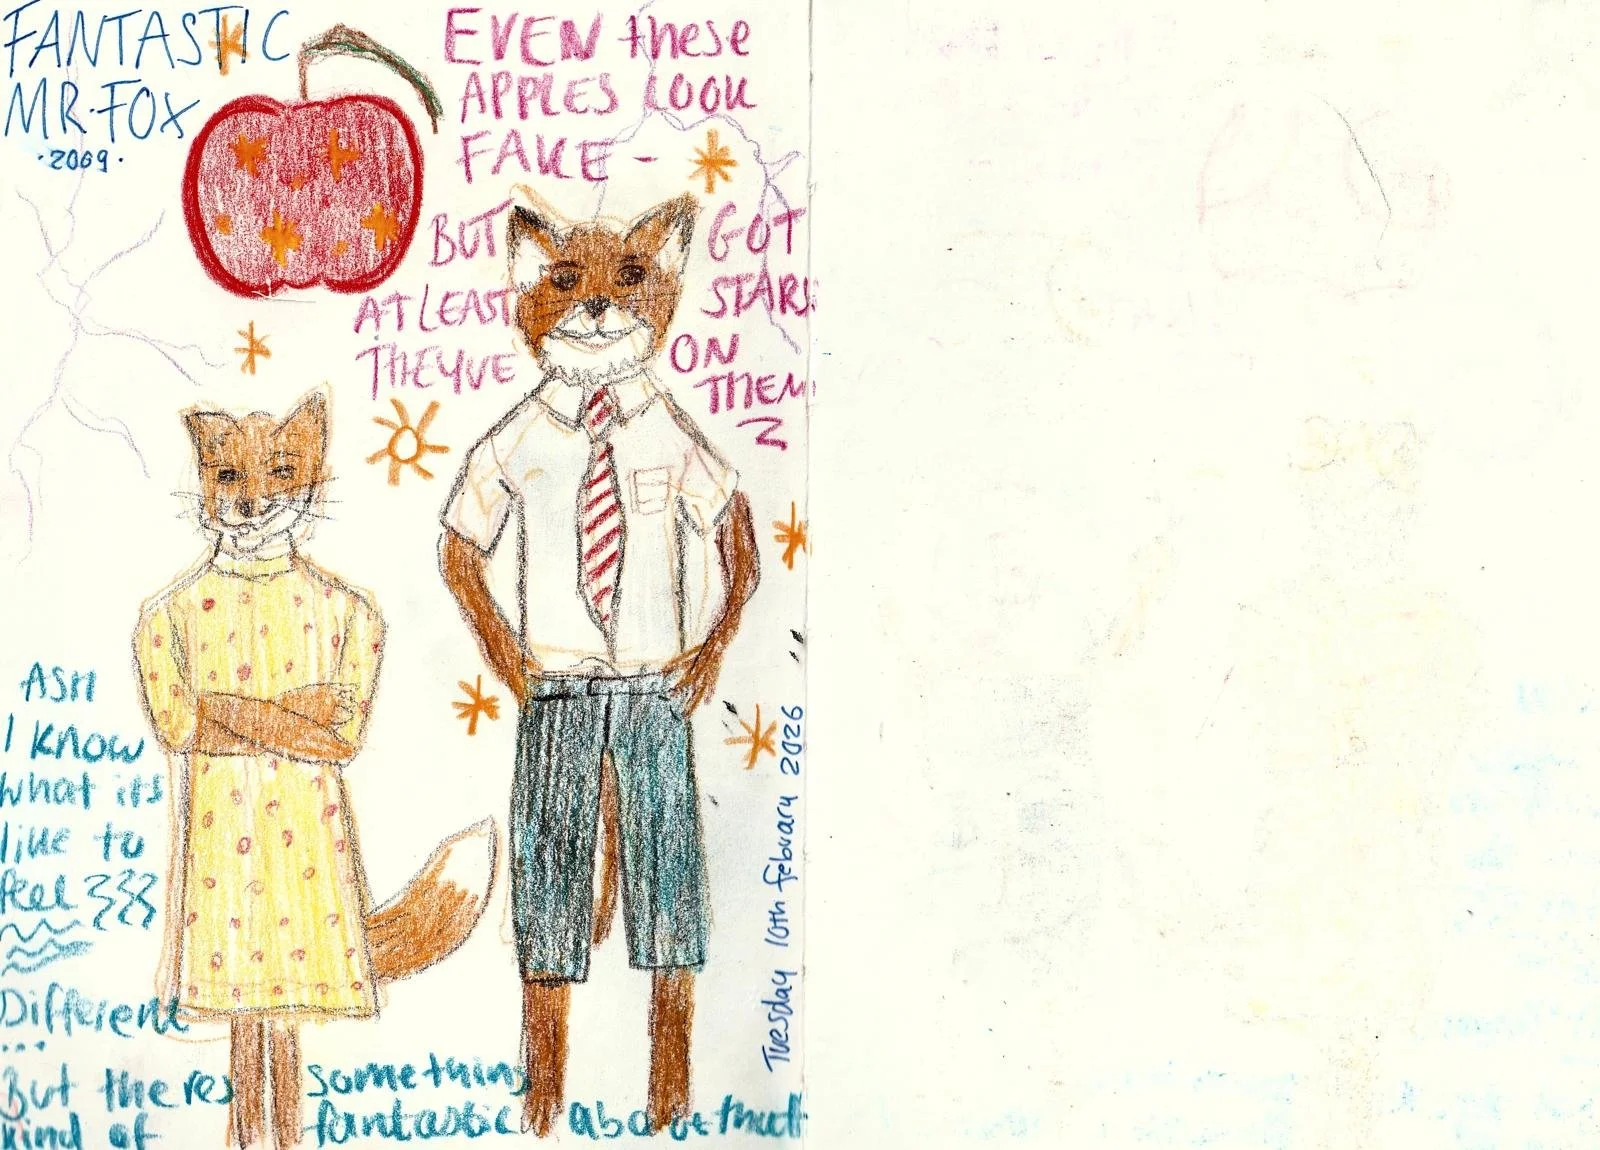 FANTASTIC
MR. FOX
· 2009 ·
EVEN these
APPLES LOOK
FAKE -
BUT GOT
AT LEAST STARS
THEYVE ON
THEM
ASH
I KNOW
what its
like to
feel
Different
...
But theres something
kind of fantastic about that
Tuesday 10th february 2026